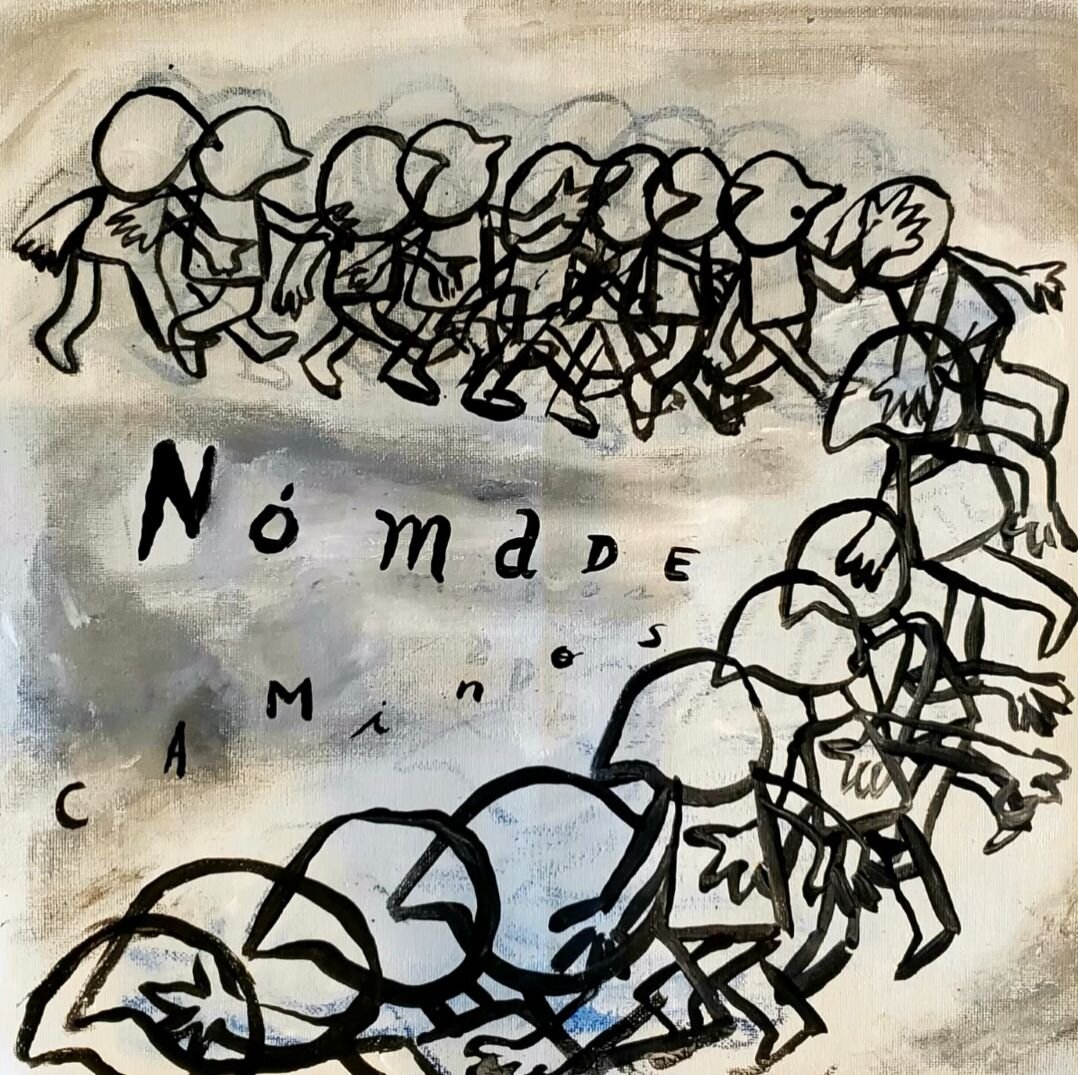 NómaDE
CAMinos